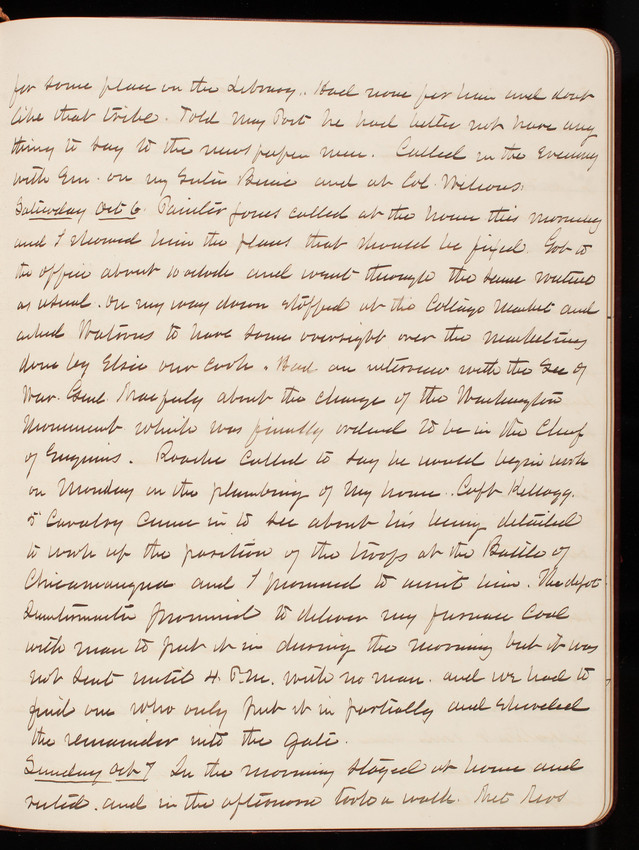 for some place in the Library. Had none for him and dont
like that tribe. Told may Post he had better not have any
thing to say to the newspaper men. Called in the Evening
with Em. on my Sister and at Col. Wilsons.
Saturday Oct 6 Painter Jones called at the house this morning
and I showed him the places that should be fixed. Got to
the office about 10 oclock and went through the same routine
as usual. On my way down stopped at the Cottage Market and
asked Watovus to have some oversight over the marketing
done by Elsie our cook. Had an interview with the Sec of
War. Genl. Macfeely about the charge of the Washington
Monument which was finally ordered to be in the Chief
of Engineers. Roache called to say he would begin work
on Monday on the plumbing of my house. Capt Kellogg
5 Cavalry came in to see about his being detailed
to work up the position of the troops at the Battle of
Chicamaugua and I promised to assist him. The depot
Quartermaster promised to deliver my furnace coal
with man to put it in during the morning but it was
not sent until 4. P.M. with no man. and we had to
find one who only put it in partially and shoveled
the remainder into the gate.
Sunday Oct 7 In the morning stayed at home and
rested. and in the afternoon took a walk. Met